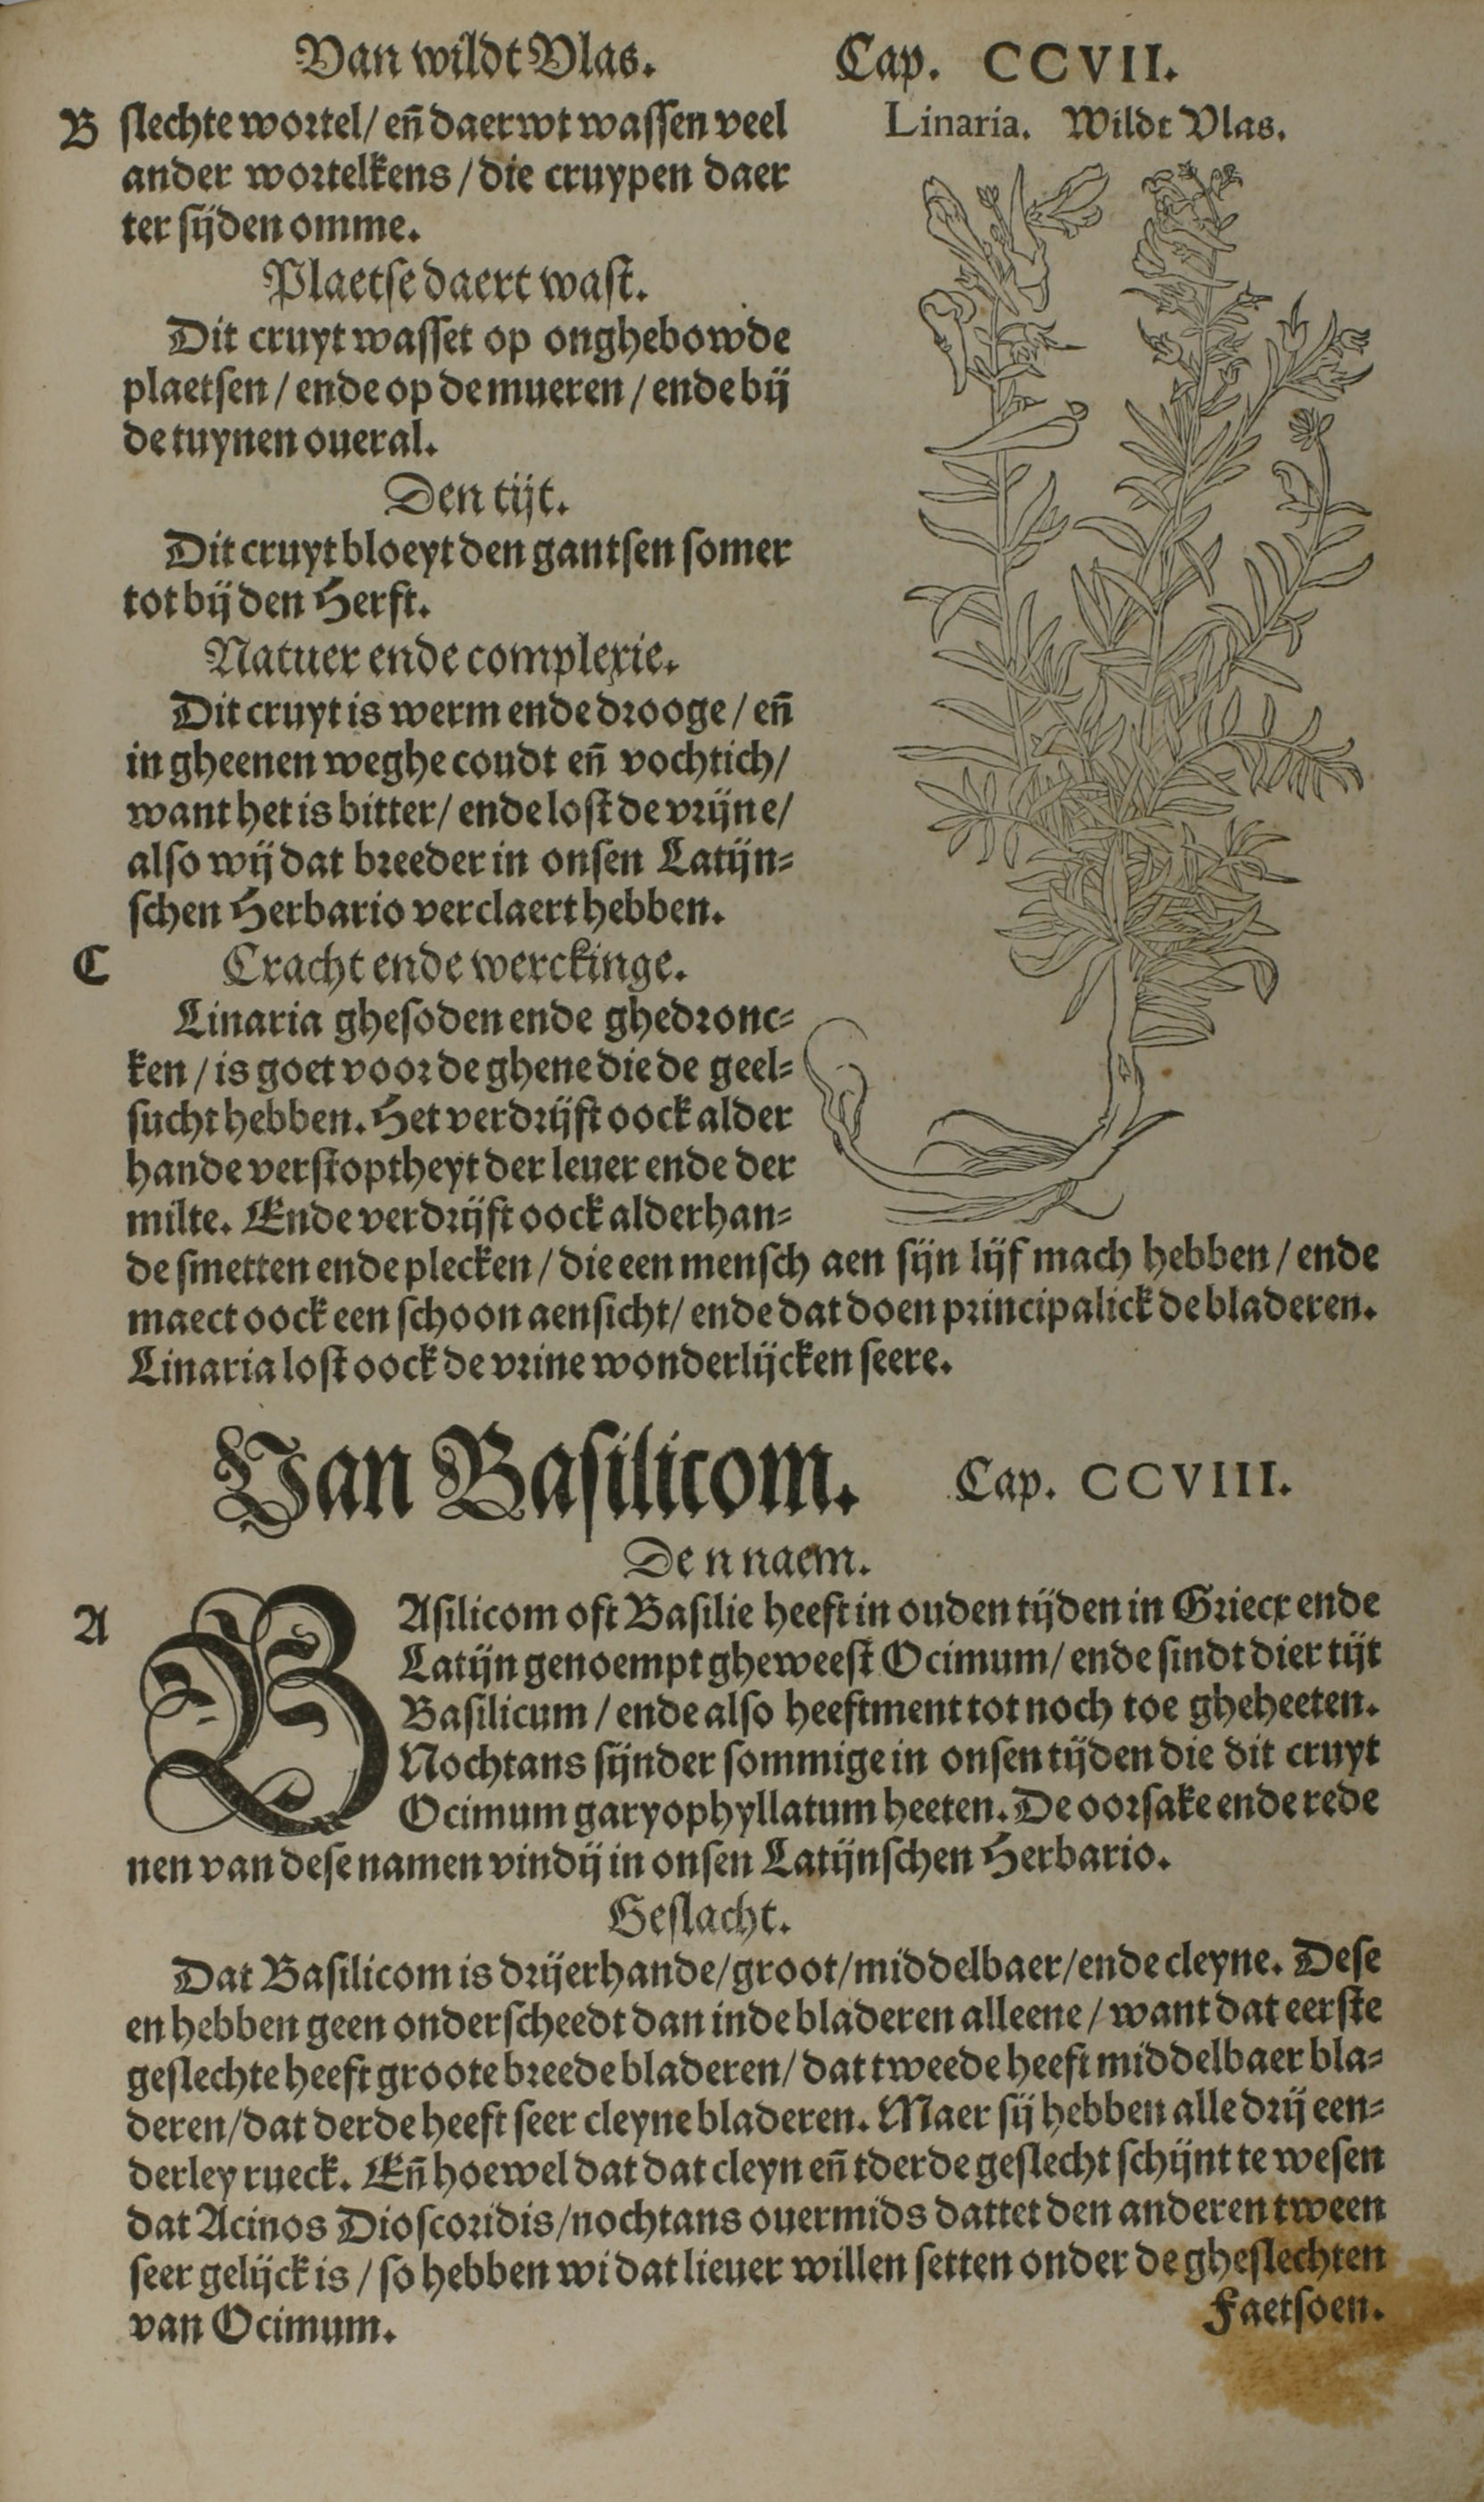 Van wildt Vlas. Cap. CCVII.
B slechte wortel/ en̄ daer wt wassen veel
ander wortelkens/ die cruypen daer
ter sijden omme.
Plaetse daert wast.
Dit cruyt wasset op onghebowde
plaetsen/ ende op de mueren/ ende bij
de tuynen oueral.
Den tijt.
Dit cruyt bloeyt den gantsen somer
tot bij den Herfst.
Natuer ende complexie.
Dit cruyt is werm ende drooge/ en̄
in gheenen weghe coudt en̄ vochtich/
want het is bitter/ ende lost de vrijne/
also wij dat breeder in onsen Latijn-
schen Herbario verclaert hebben.
C Cracht ende werckinge.
Linaria ghesoden ende ghedronc-
ken/ is goet voor de ghene die de geel-
sucht hebben. Het verdrijft oock alder
hande verstoptheyt der leuer ende der
milte. Ende verdrijft oock alderhan-
de smetten ende plecken/ die een mensch aen sijn lijf mach hebben/ ende
maect oock een schoon aensicht/ ende dat doen principalick de bladeren.
Linaria lost oock de vrine wonderlijcken seere.
Linaria. Wildt Vlas.
Van Basilicom. Cap. CCVIII.
Den naem.
A BAsilicom oft Basilie heeft in ouden tijden in Griecx ende
Latijn genoempt gheweest Ocimum/ ende sindt dier tijt
Basilicum/ ende also heeftment tot noch toe gheheeten.
Nochtans sijnder sommige in onsen tijden die dit cruyt
Ocimum garyophyllatum heeten. De oorsake ende rede
nen van dese namen vindij in onsen Latijnschen Herbario.
Geslacht.
Dat Basilicom is drijerhande/ groot/ middelbaer/ ende cleyne. Dese
en hebben geen onderscheedt dan in de bladeren alleene/ want dat eerste
geslechte heeft groote breede bladeren/ dat tweede heeft middelbaer bla-
deren/ dat derde heeft seer cleyne bladeren. Maer sij hebben alle drij een-
derley rueck. En̄ hoewel dat dat cleyn en̄ tderde geslecht schijnt te wesen
dat Acinos Dioscoridis/ nochtans ouermids dattet den anderen tween
seer gelijck is/ so hebben wi dat lieuer willen setten onder de gheslechten
van Ocimum. Faetsoen.